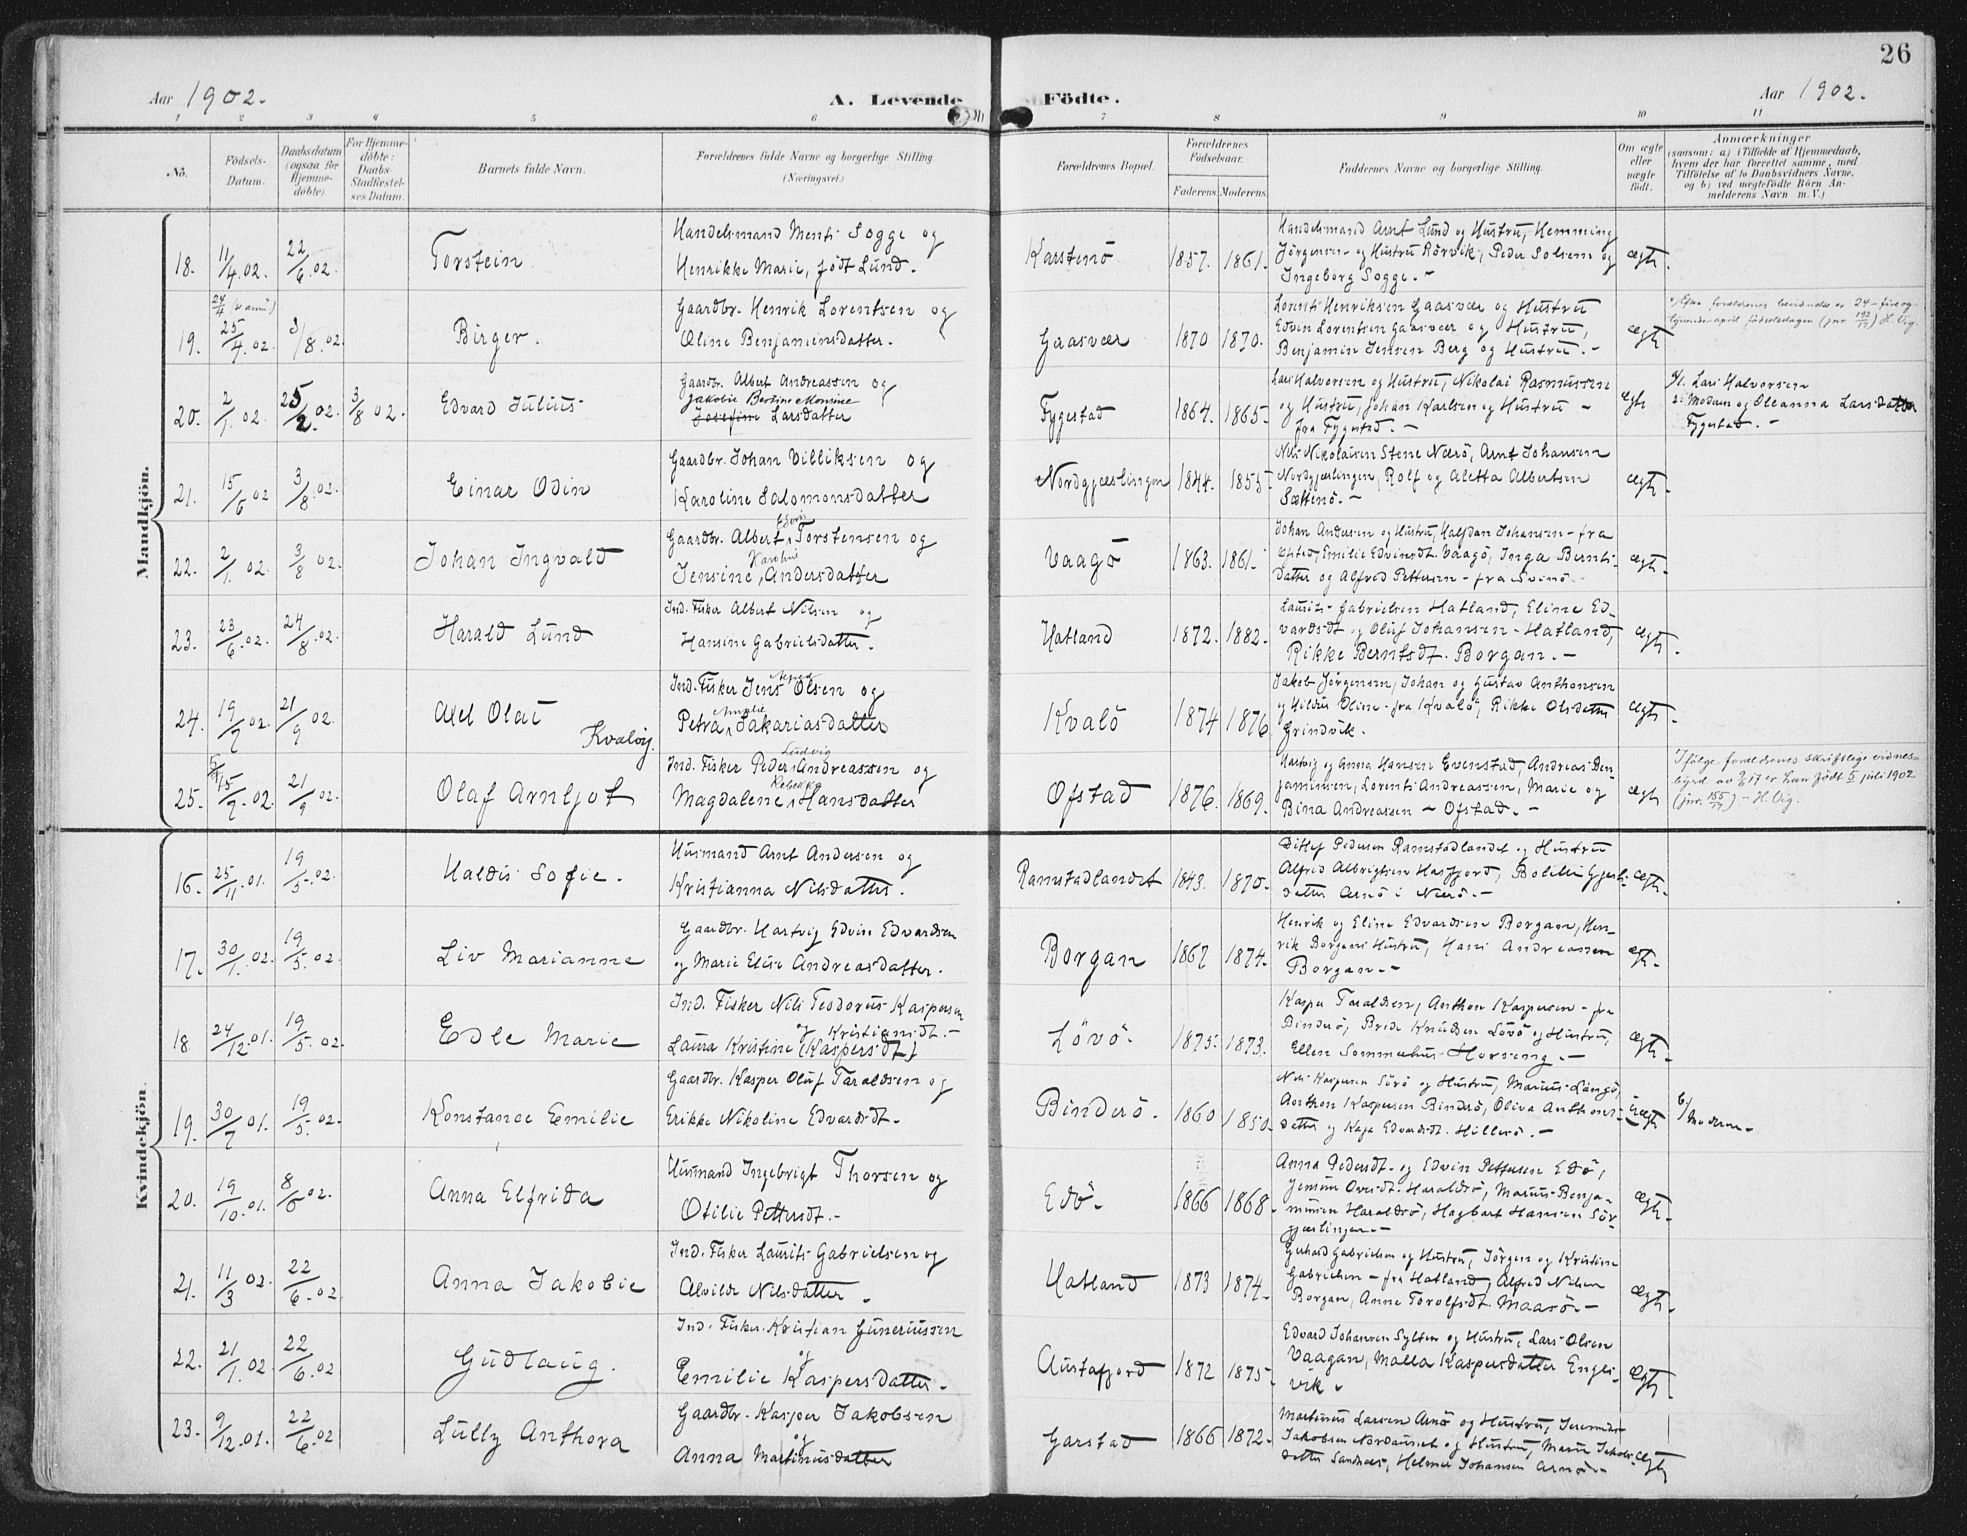 26
Aar 1902.
A. Levende Födte.
Aar 1902.
1 2 3 4 5 6 7 8 9 10 11
No.
Födsels-Datum.
Daabsdatum (ogsaa for Hjemme-döbte).
For Hjemme-döbte: Daabs-Stadfæstel-ses Datum.
Barnets fulde Navn.
Forældrenes fulde Navne og borgerlige Stilling (Næringsvei.)
Forældrenes Bopæl.
Forældrenes Födselsaar.
Faderens. Moderens.
Faddernes Navne og borgerlige Stilling.
Om ægte eller uægte födt.
Anmærkninger
(saasom: a) i Tilfælde af Hjemmedaab, hvem der har forrettet samme, med Tilföielse af to Daabsvidners Navne, og b) ved uægtefödte Börn An-melderens Navn m. V.)
Mandkjön.
18. 11/4.02. 22/6.02. Torstein
Handelsmand Menti Sogge og
Henrikke Marie, födt Lund.
Karstenö 1857. 1861.
Handelsmand Arnt Lund og Hustru, Hemming
Jörgensen og Hustru Rörvik, Peder Solsem og
Ingeborg Sogge. –
ægte.
19. 25/4.02. 3/8.02. Birger.
24/4
Gaardbr. Henrik Lorentsen og
Oline Benjaminsdatter.
Gaasvær 1870 1870.
Lorents Henriksen Gaasvær og Hustru
Edvin Lorentsen Gaasvær og Hustru,
Benjamin Jensen Berg og Hustru. –
ægte
20. 2/1.02. 25/2.02. 3/8 02. Edvard Julius
Gaardbr. Albert Andreassen og
Jakobie Bertine Monsine
Josefine Larsdatter
Fygestad 1864. 1865.
Lars Halvorsen og Hustru, Nikolai Rasmussen
og Hustru, Johan Karlsen og Hustru –
fra Fygestad. –
ægte
Lars Halvorsen
2: Modern og Oleanna Larsdatter
Fygestad. –
21. 15/6 02 3/8.02. Einar Odin
Gaardbr. Johan Villiksen og
Karoline Salomonsdatter
Nordgjæslingen 1844. 1855
Nils Nikolaisen Stene Nærö, Arnt Johansen
Nordgjæslingen, Rolf og Aletta Albertsen
Sættinö. –
ægte.
22. 2/1 02. 3/8 02. Johan Ingvald
Gaardbr. Albert Edvin Torstensen og
Jensine Karoline Andersdatter
Vaagö 1863. 1861.
Johan Andersen og Hustru, Halfdan Johansen – fra
Ofstad, Emilie Edvinsdt. Vaagö, Inga Bernts-
datter og Alfred Pettersen – fra Svinö.
ægte.
23. 23/6.02. 24/8.02. Harald Lund
Ind. Fisker Albert Nilsen og
Hansine Gabrielsdatter.
Hatland 1872. 1882.
Laurits Gabrielsen Hatland, Eline Ed-
vardsdt og Oluf Johansen – Hatland,
Rikke Berntsdt. Borgan. –
ægte.
24. 19/7 02. 21/9 02. Axel Olai
Kvaløy.
Ind. Fisker Jens Alfred Olsen og
Petra Amalie Sakariasdatter
Kvalö 1874 1876
Jakob Jörgensen, Johan og Gustav Anthonsen
og Hildus Oline – fra Kvalö, Rikke Olsdatter
Grindvik.
ægte.
25. 15/7.02. 21/9 02. Olaf Arnljot
5/7
Ind. Fisker Peder Ludvig Andreassen og
Magdalene Rebekka Hansdatter
Ofstad 1876. 1869.
Hartvig og Anna Hansen Evenstad, Andreas Ben-
jaminsen, Lorents Andreassen, Marie og
Bina Andreassen – Ofstad. –
ægte
Ifölge forældrenes skriftlige vidnes-
byrd av 9/8 17 er han födt 5 juli 1902
(jnr. 155/17) – H. Vig.
Kvindekjön.
16. 25/11.01. 19/5.02. Haldis Sofie.
Husmand Arnt Andersen og
Kristianna Nilsdatter.
Ramstadlandet 1843. 1870.
Ditlef Pedersen Ramstadlandet og Hustru
Alfred Albrigtsen Hasfjord,
datter Arnö i Nærö. –
ægte.
17. 30/1.02. 19/5.02. Liv Marianne
Gaardbr. Hartvig Edvin Edvardsen
og Marie Elise Andreasdatter.
Borgan 1867 1874.
Henrik og Eline Edvardsen Borgan, Hen-
rik Borgans Hustru, Hans Andreassen
Borgan. –
ægte.
18. 24/12.01. 19/5.02. Edle Marie
Ind. Fisker Nils Teodorus Kaspersen
og Kristiansdt. –
Laura Kristine (Kaspersdt)
Lövö. 1875. 1873.
Kasper Taraldsen, Anthon Kaspersen – fra
Binderö, Brede Knudsen Lövö og Hustru,
Ellen Sommehus Horseng. –
ægte.
19. 30/7 01. 19/5.02. Konstance Emilie
Gaardbr. Kasper Oluf Taraldsen og
Erikke Nikoline Edvardsdt.
Binderö. 1860 1850.
Nils Kaspersen Sörö og Hustru, Marius Langö,
Anthon Kaspersen Binderö, Oliva Anthons-
datter og Kaja Edvardsdt. Hillerö. –
uægte
b/ Moderen.
20. 19/10.01. 8/6 02. Anna Elfrida
Husmand Ingebrigt Thorsen og
Otilie Pettersdt. –
Edö. 1866 1868.
Anna Pedersdt. og Edvin Pettersen Edö,
Jensine Ovesdt. Haraldsö, Marius Benja-
minsen Haraldsö, Hagbart Hansen Sör-
gjæslingen. –
ægte.
21. 11/3 02. 22/6.02. Anna Jakobie
Ind. Fisker Laurits Gabrielsen og
Alvilde Nilsdatter.
Hatland 1873 1874.
Gerhard Gabrielsen og Hustru, Jörgen og Kristine
Gabrielsen – fra Hatland, Alfred Nilsen
Borgan, Anne Torolfsdt. Maasö. –
ægte.
22. 21/1.02. 22/6.02 Gudlaug.
Ind. Fisker Kristian Guneriussen
og
Emilie Kaspersdatter.
Austafjord 1872 1875
Edvard Johansen Sylten og Hustru, Lars Olsen
Vaagan, Malla Kaspersdatter Engls-
vik.
ægte.
23. 9/12.01. 22/6.02 Lully Anthora
Gaardbr. Kasper Jakobsen
og
Anna Martinusdatter
Garstad 1866 1872.
Martinus Larsen Arnö og Hustru, Jeremias
Jakobsen Nordaunet og Hustru, Marie Jakobs-
datter Sandnes, Helmer Johansen Arnö. –
ægte